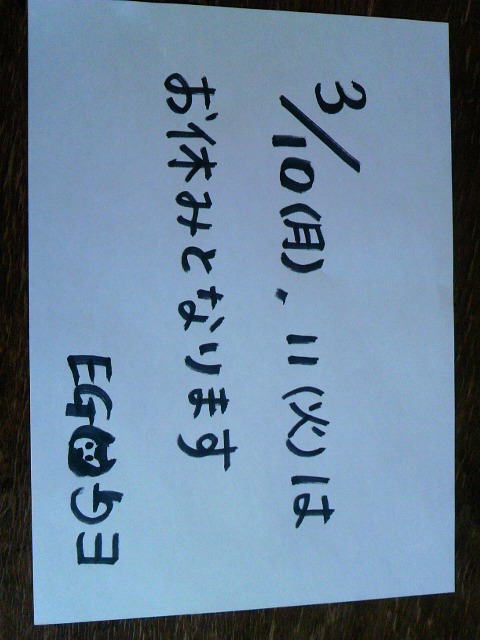 3/10(月)、11(火)は
お休みとなります